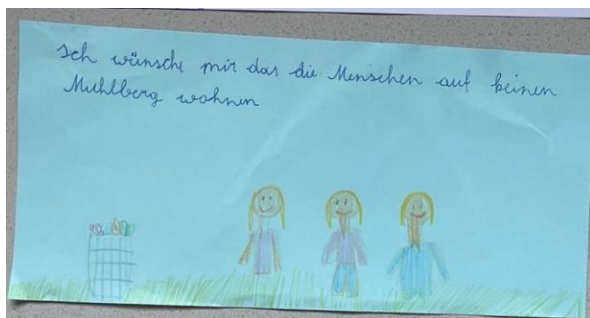 Ich wünsche mir das die Menschen auf keinen
Muhlberg wohnen